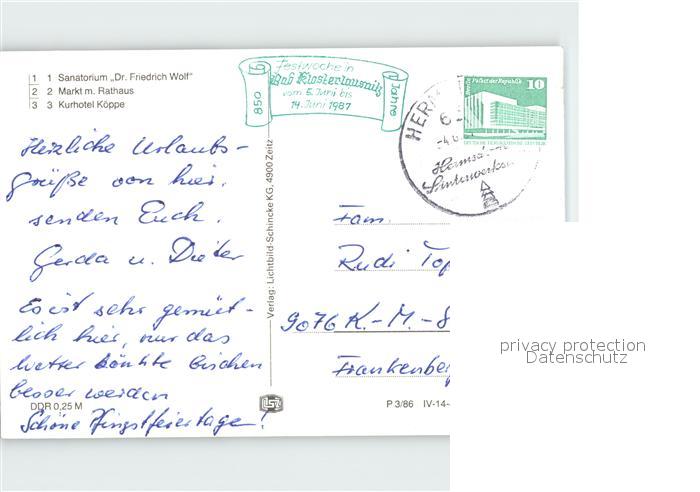 1 1 Sanatorium „Dr. Friedrich Wolf"
2 2 Markt m. Rathaus
3 3 Kurhotel Köppe
850 Jahre
Festwoche in
Bad Klosterlausnitz
vom 5. Juni bis
14. Juni 1987
Palast der Republik
10
DEUTSCHE DEMOKRATISCHE REPUBLIK
HERM
Herzliche Urlaubs-
grüße von hier.
senden Euch.
Gerda u. Dieter
Es ist sehr gemüt-
lich hier, nur das
Wetter könnte bischen
besser werden
Schöne Pfingstfeiertage!
Verlag: Lichtbild-Schincke KG, 4900 Zeitz
Fam.
Rudi Top
9076 K.-M.-S
Frankenberg
DDR 0,25 M
P 3/86 IV-14-
privacy protection
Datenschutz